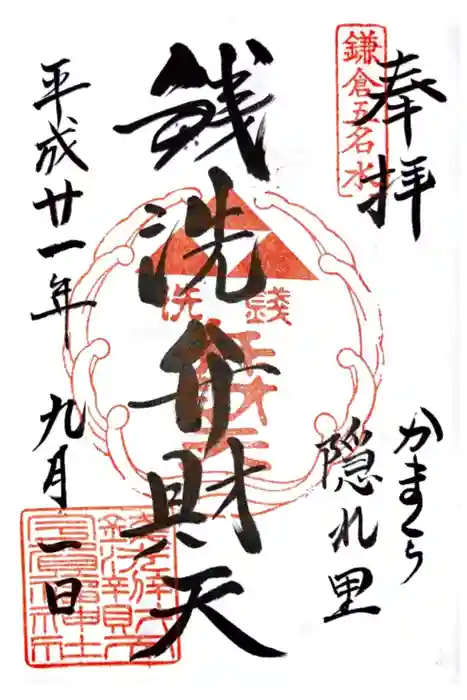 奉拝
鎌倉五名水
かまくら
隠れ里
銭洗弁財天
銭洗
平成廿一年九月一日